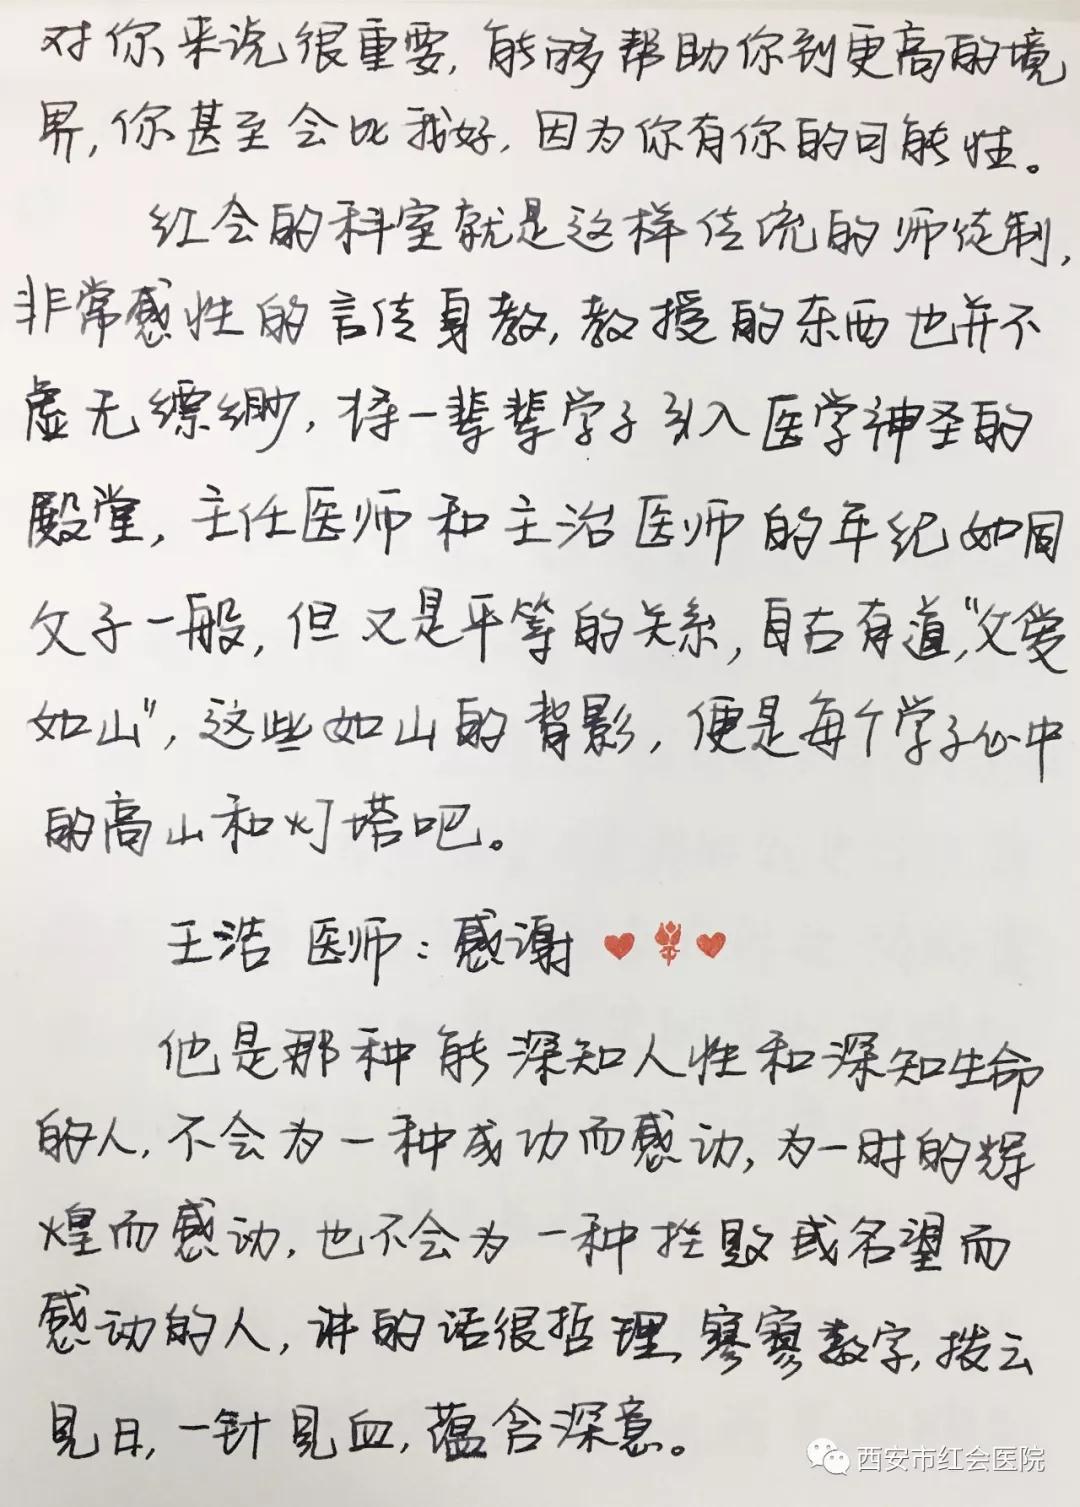 对你来说很重要,能够帮助你到更高的境
界,你甚至会比我好,因为你有你的可能性。
红会的科室就是这样传统的师徒制,
非常感性的言传身教,教授的东西也并不
虚无缥缈,将一辈辈学子引入医学神圣的
殿堂,主任医师和主治医师的年纪如同
父子一般,但又是平等的关系,自古有道,“父爱
如山”,这些如山的背影,便是每个学子心中
的高山和灯塔吧。
王浩 医师:感谢
他是那种能深知人性和深知生命
的人,不会为一种成功而感动,为一时的辉
煌而感动,也不会为一种挫败或名望而
感动的人,讲的话很哲理,寥寥数字,拨云
见日,一针见血,蕴含深意。
西安市红会医院